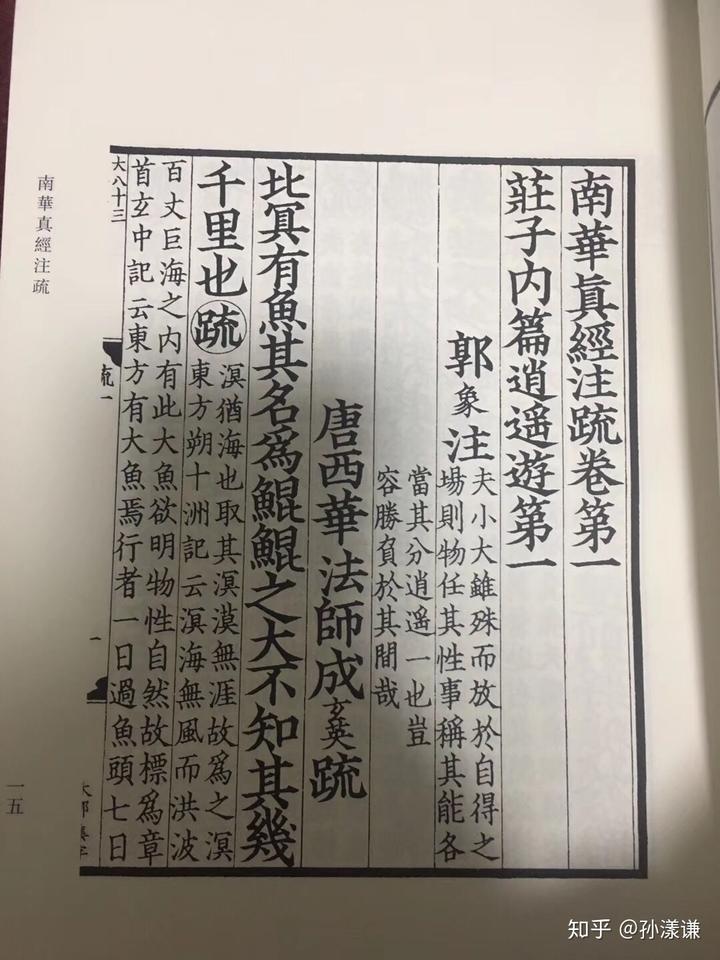 南華眞經注疏卷第一
莊子内篇逍遥遊第一
郭象注
夫小大雖殊而放於自得之
場則物任其性事稱其能各
當其分逍遥一也豈
容勝負於其間哉
唐西華法師成玄英疏
北冥有魚其名爲鯤鯤之大不知其幾
千里也疏
溟猶海也取其溟漠無涯故爲之溟
東方朔十洲記云溟海無風而洪波
百丈巨海之内有此大魚欲明物性自然故標爲章
首玄中記云東方有大魚焉行者一日過魚頭七日
大八十三
疏一
一
南華真經注疏
一五
知乎 @孙漾谦